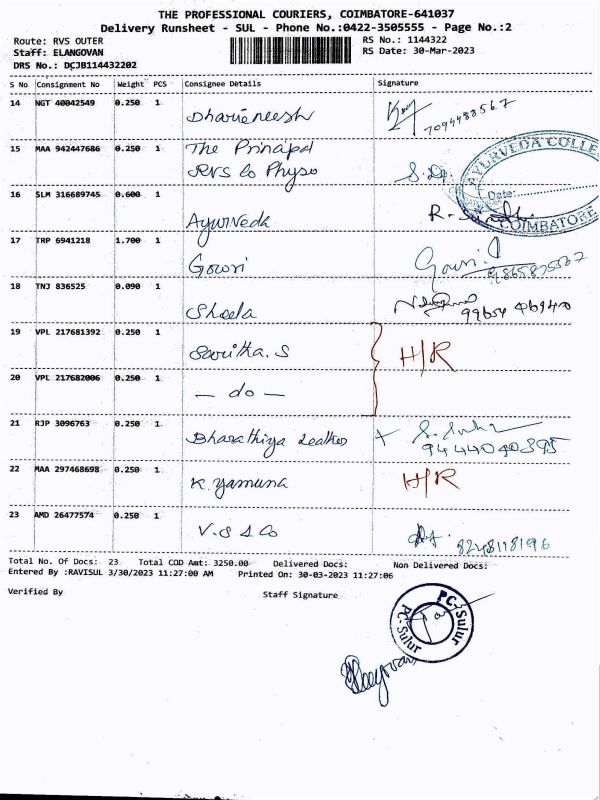 THE PROFESSIONAL COURIERS, COIMBATORE-641037
Delivery Runsheet - SUL - Phone No.:0422-3505555 - Page No.:2
Route: RVS OUTER RS No.: 1144322
Staff: ELANGOVAN RS Date: 30-Mar-2023
DRS No.: DCJB114432202
S No Consignment No Weight PCS Consignee Details Signature
14 NGT 40042549 0.250 1
7094488567
15 MAA 942447686 0.250 1 The Principal
RVS Co Physio
AYURVEDA COLLE
Date:
COIMBATORE
16 SLM 316689745 0.600 1
Ayurveda
17 TRP 6941218 1.700 1
Gowri Gowri.
18 TNJ 836525 0.090 1
Sheela
19 VPL 217681392 0.250 1
Savitha.S H/R
20 VPL 217682006 0.250 1
— do —
21 RJP 3096763 0.250 1
Bharathiya Leather
9444040395
22 MAA 297468698 0.250 1
K. Yamuna H/R
23 AMD 26477574 0.250 1
V.S & Co 8248118196
Total No. Of Docs: 23 Total COD Amt: 3250.00 Delivered Docs: Non Delivered Docs:
Entered By :RAVISUL 3/30/2023 11:27:00 AM Printed On: 30-03-2023 11:27:06
Verified By Staff Signature
PC-Sulur
PC-Sulur